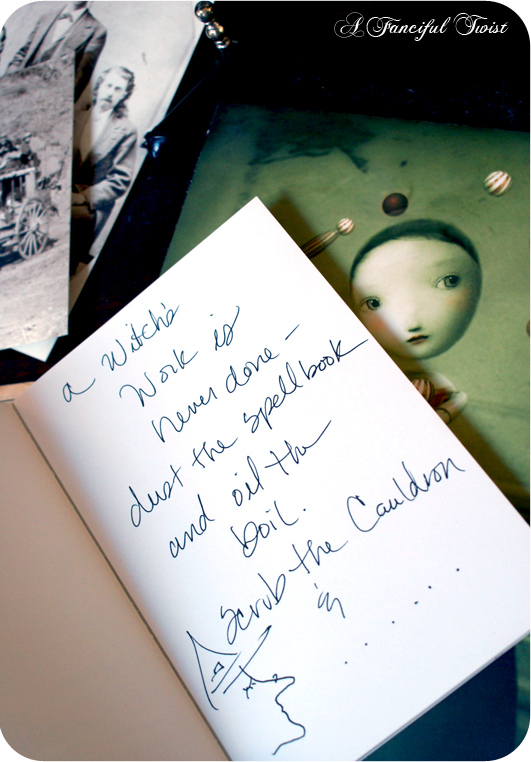 A Fanciful Twist
a Witch's
Work is
never done –
dust the spellbook
and oil the
boil.
Scrub the Cauldron
&
. . . . . . .